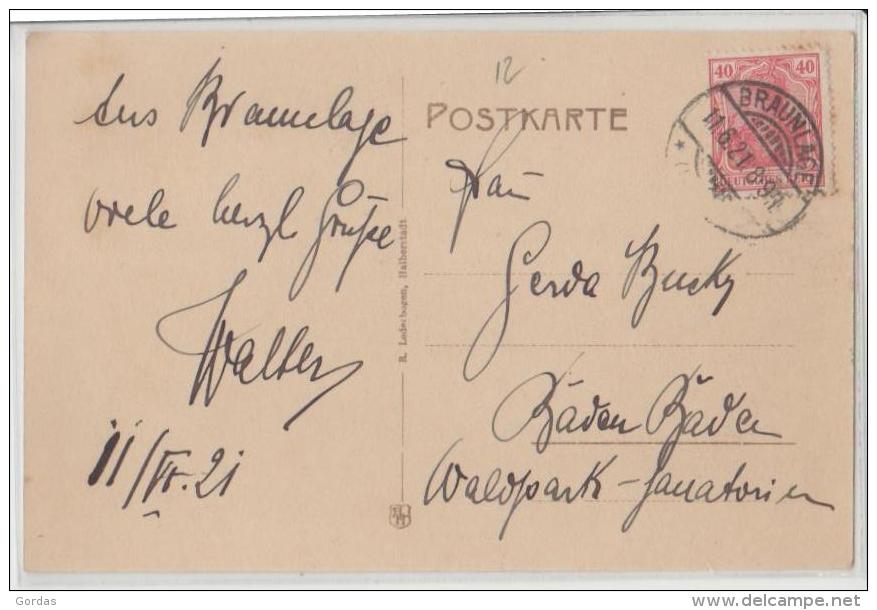 Aus Braunlage
viele herzl Grüße
Walter
11/VI. 21
R. Lederbogen, Halberstadt
12
POSTKARTE
40 40
BRAUNLAGE
11.6.21. 8-9N
Frau
Gerda Bucky
Baden Baden
Waldpark-Sanatorium
Gordas
www.delcampe.net